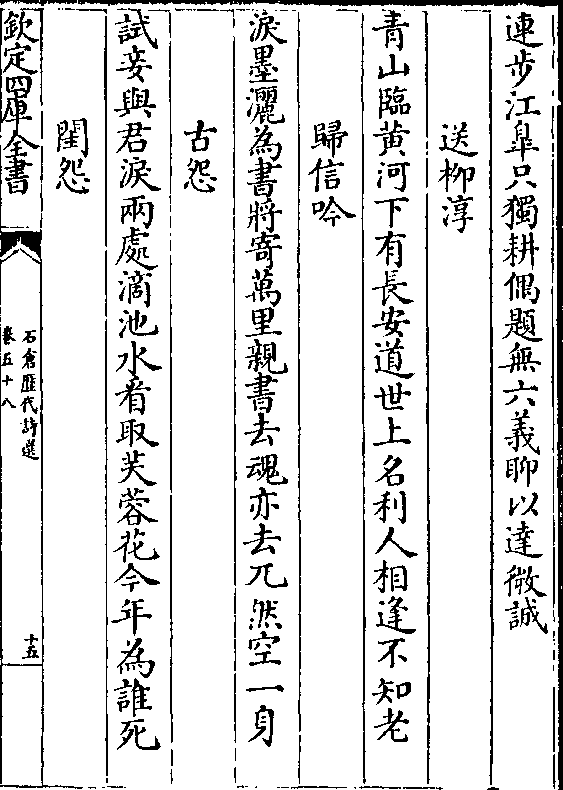 連步江臯只獨耕偶題無六義聊以達微誠
送柳淳
青山臨黄河下有長安道世上名利人相逢不知老
歸信吟
淚墨灑為書將寄萬里親書去魂亦去兀然空一身
古怨
試妾與君淚兩處滴池水看取芙蓉花今年為誰死
閨怨
欽定四庫全書
石倉歴代詩選
卷五十八
十五